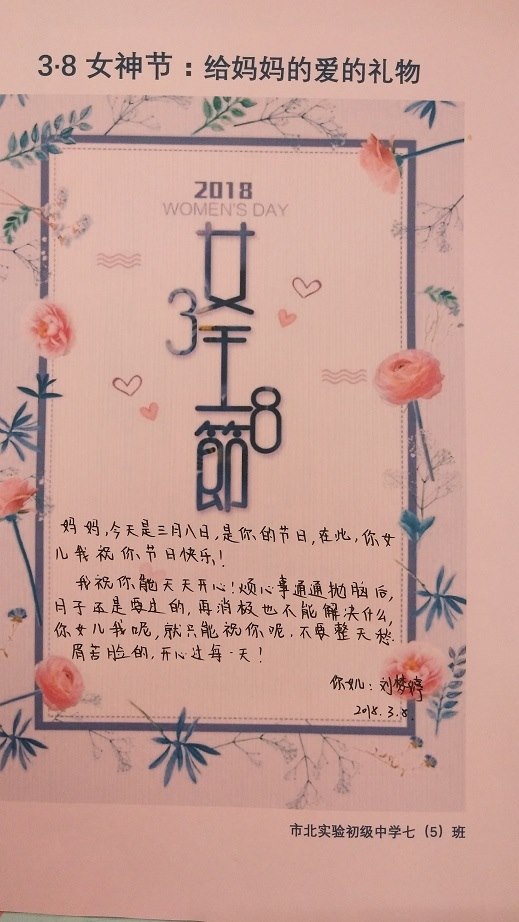 3·8 女神节：给妈妈的爱的礼物
2018
WOMEN'S DAY
女
3
王
8
節
妈妈，今天是三月八日，是你的节日，在此，你女
儿我祝你节日快乐！
我祝你能天天开心！烦心事通通抛脑后，
日子还是要过的，再消极也不能解决什么，
你女儿我呢，就只能祝你呢，不要整天愁
眉苦脸的，开心过每一天！
你女儿：刘梦婷
2018.3.8.
市北实验初级中学七（5）班